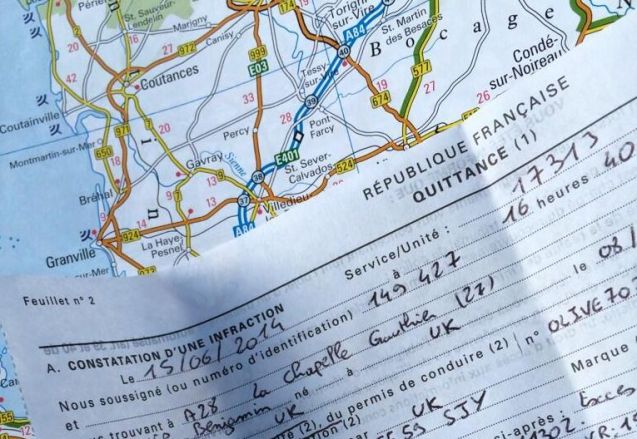 St. Sauveur-
Lendelin
Marigny
Canisy
Torigni-
sur-Vire
St. Martin
des Besaces
Bocage
Condé-
sur-Noireau
Coutances
Coutainville
Tessy-
sur-Vire
Pont
Farcy
Percy
Montmartin-sur-Mer
Gavray
Sienne
St. Sever-
Calvados
Bréhal
Villedieu
Granville
La Haye-
Pesnel
sur-Mer
20
971
972
174
A84
40
999
E03
42
16
17
26
39
577
674
27
26
21
971
20
28
650
18
16
13
E401
524
38
37
A84
924
973
RÉPUBLIQUE FRANÇAISE
QUITTANCE (1)
Feuillet n° 2
Service/Unité : 17313
A. CONSTATATION D'UNE INFRACTION
Le 15/06/2014 à 16 heures 40
Nous soussigné (ou numéro d'identification) 149 427
et
se trouvant à A28 La Chapelle Gauthier (27)
Benjamin né à UK le 03/
UK
du permis de conduire (2) n° OLIVE70
UK
59 SJY
Marque
ci-après :
Exces
1302.